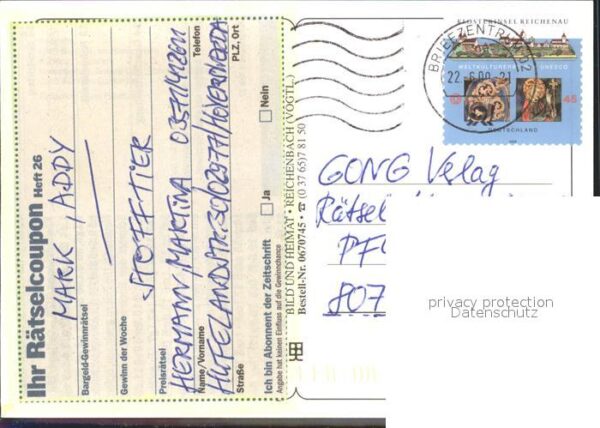 Ihr Rätselcoupon Heft 26
MARK ADDY
Bargeld-Gewinnrätsel
Gewinn der Woche
STOFFTIER
Preisrätsel
HERMANN, MARTINA 03571/412611
Name/Vorname Telefon
HUFELANDSTR. 30/02977/HOYERSWERDA
Straße PLZ, Ort
Ich bin Abonnent der Zeitschrift Ja Nein
Angabe hat keinen Einfluss auf die Gewinnchance
BILD UND HEIMAT • REICHENBACH (VOGTL.)
Bestell-Nr. 0670745 • ☎ (0 37 65) 7 81 50
KLOSTERINSEL REICHENAU
BRIEFZENTRUM
22.-6.09.-21
WELTKULTURERBE UNESCO
45
DEUTSCHLAND
GONG Verlag
Rätsel
PF
807
privacy protection
Datenschutz